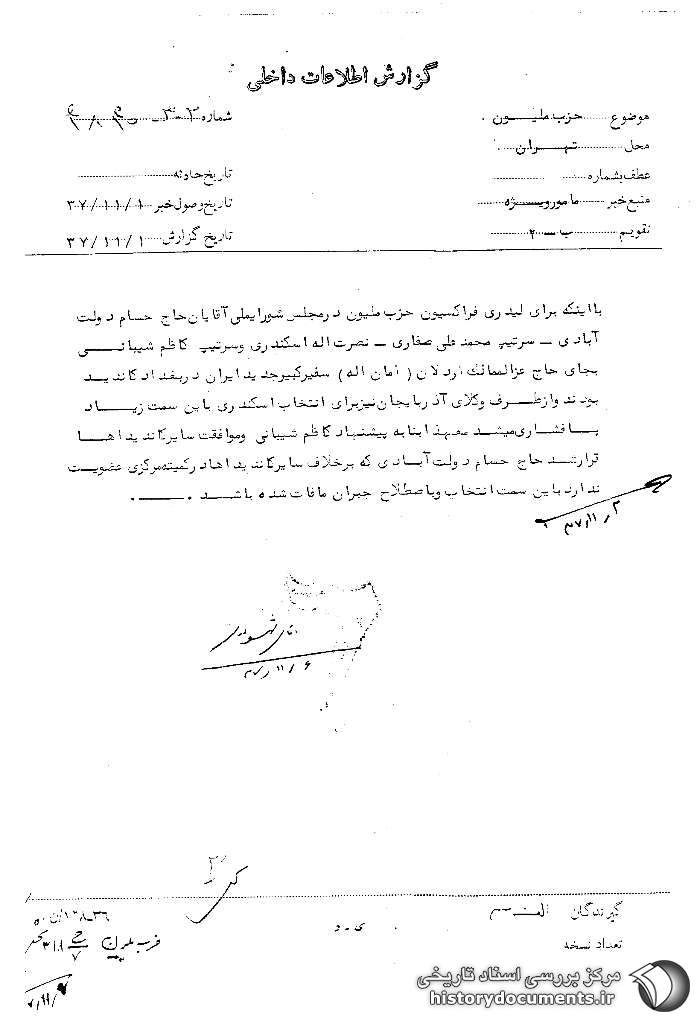 گزارش اطلاعات داخلی
موضوع حزب ملیون
محل تهران
عطف بشماره
منبع خبر مامور ویژه
تقویم ب - ۲
شماره
تاریخ حادثه
تاریخ وصول خبر ۳۷/۱۱/۱
تاریخ گزارش ۳۷/۱۱/۱
با اینکه برای لیدری فراکسیون حزب ملیون در مجلس شورایملی آقایان حاج حسام دولت
آبادی - سرتیپ محمد علی صفاری - نصرت اله اسکندری و سرتیپ کاظم شیبانی
بجای حاج عزالممالک اردلان (امان اله) سفیر کبیر جدید ایران در بغداد کاندید
بودند و از طرف وکلای آذربایجان نیز برای انتخاب اسکندری باین سمت زیاد
پافشاری میشد معهذا بنا به پیشنهاد کاظم شیبانی و موافقت سایر کاندیداها
قرار شد حاج حسام دولت آبادی که بر خلاف سایر کاندیداها در کمیته مرکزی عضویت
ندارد باین سمت انتخاب و باصطلاح جبران مافات شده باشد .
۳۷/۱۱/۲
۳۷/۱۱/۶
گیرندگان الف - سم
تعداد نسخه
ی - د
مرکز بررسی اسناد تاریخی
historydocuments.ir